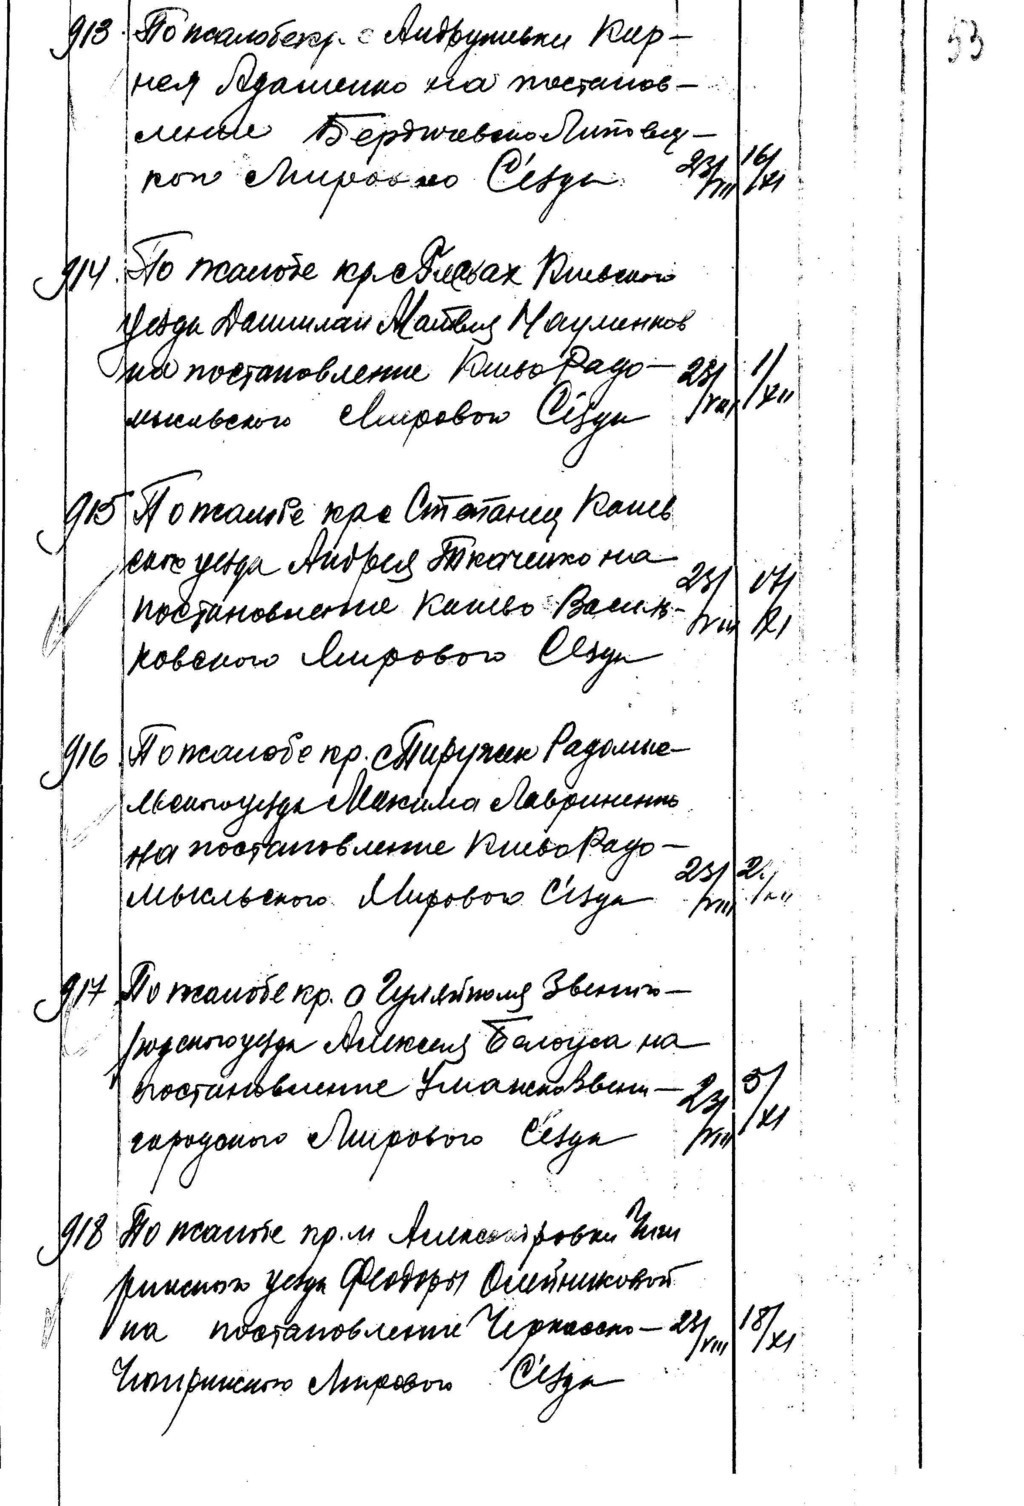 53
913. По жалобе кр. с Андрушевки Кир-
нея Адаменко на постанов-
ление Бердичевско Липовец-
кого Мирового Сѣзда 23/VIII 16/XI
914. По жалобе кр с Киевского
уезда Даниила и Матвея Науменков
на постановление Киево Радо- 23/VIII 1/XII
мысльского Мирового Сѣзда
915 По жалобе кр с Степанец Канев
ского уезда Андрея Ткаченко на
постановление Киево Василь- 23/VIII 17/XI
ковского Мирового Сѣзда
916 По жалобе кр. с Радомыс-
льского уезда Максима Лавриненко
на постановление Киево Радо-
мысльского Мирового Сѣзда 23/VIII
917 По жалобе кр. с Гуляйполя Звениго-
родского уезда Алексея Белоуса на
постановление Уманско Звени- 23/VIII 5/XI
городского Мирового Сѣзда
918 По жалобе кр. м Александровки Чиги
ринского уезда Феодоры Олейниковой
на постановление Черкасско- 23/VIII 18/XI
Чигиринского Мирового Сѣзда